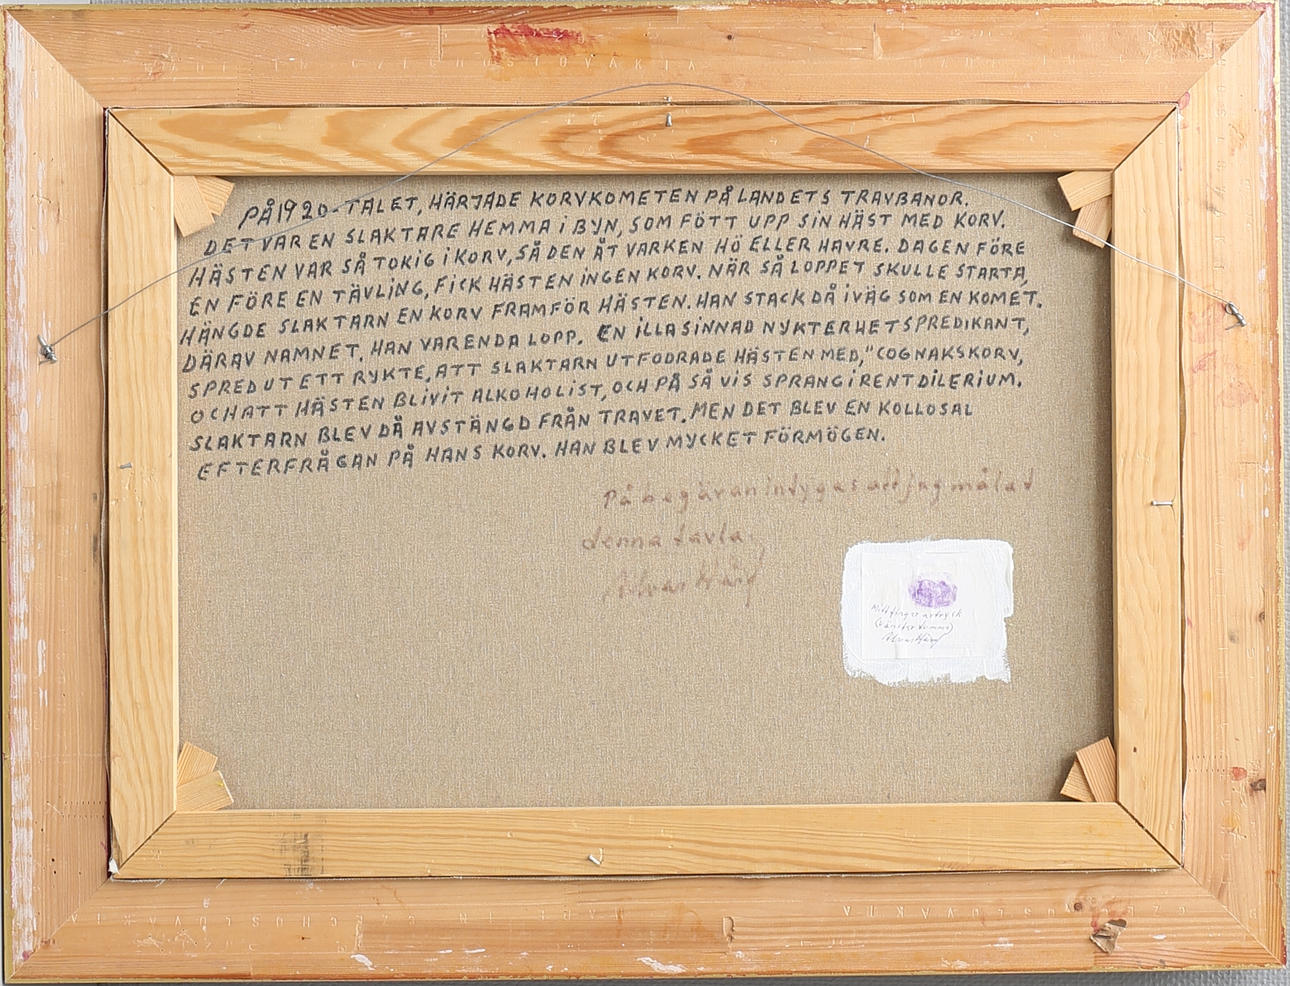 MADE IN CZECHOSLOVAKIA
PÅ 1920-TALET, HÄRJADE KORVKOMETEN PÅ LANDETS TRAVBANOR.
DET VAR EN SLAKTARE HEMMA I BYN, SOM FÖTT UPP SIN HÄST MED KORV.
HÄSTEN VAR SÅ TOKIG I KORV, SÅ DEN ÅT VARKEN HÖ ELLER HAVRE. DAGEN FÖRE
EN FÖRE EN TÄVLING, FICK HÄSTEN INGEN KORV. NÄR SÅ LOPPET SKULLE STARTA,
HÄNGDE SLAKTARN EN KORV FRAMFÖR HÄSTEN. HAN STACK DÅ IVÄG SOM EN KOMET.
DÄRAV NAMNET. HAN VARENDA LOPP. EN ILLASINNAD NYKTERHETSPREDIKANT,
SPRED UT ETT RYKTE, ATT SLAKTARN UTFODRADE HÄSTEN MED, "COGNAKSKORV,
OCH ATT HÄSTEN BLIVIT ALKOHOLIST, OCH PÅ SÅ VIS SPRANG I RENT DILERIUM.
SLAKTARN BLEV DÅ AVSTÄNGD FRÅN TRAVET. MEN DET BLEV EN KOLLOSAL
EFTERFRÅGAN PÅ HANS KORV. HAN BLEV MYCKET FÖRMÖGEN.
På begäran intygas att jag målat
denna tavla.
Alvar Härd
Mitt finger avtryck
(vänster tumme)
Alvar Härd
CZECHOSLOVAKIA
MADE IN CZECHOSLOVAKIA